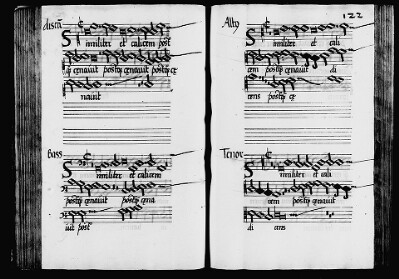 Similiter et calicem post
cenavit postq cenavit postq ce
navit
Bass
Similiter et calicem
postq cenavit postq cena
vit post
122
Alty
Similiter et cali
cem postq cenavit di
cens postq ce
Tenor
Similiter et cali
cem postq cenavit
di cens